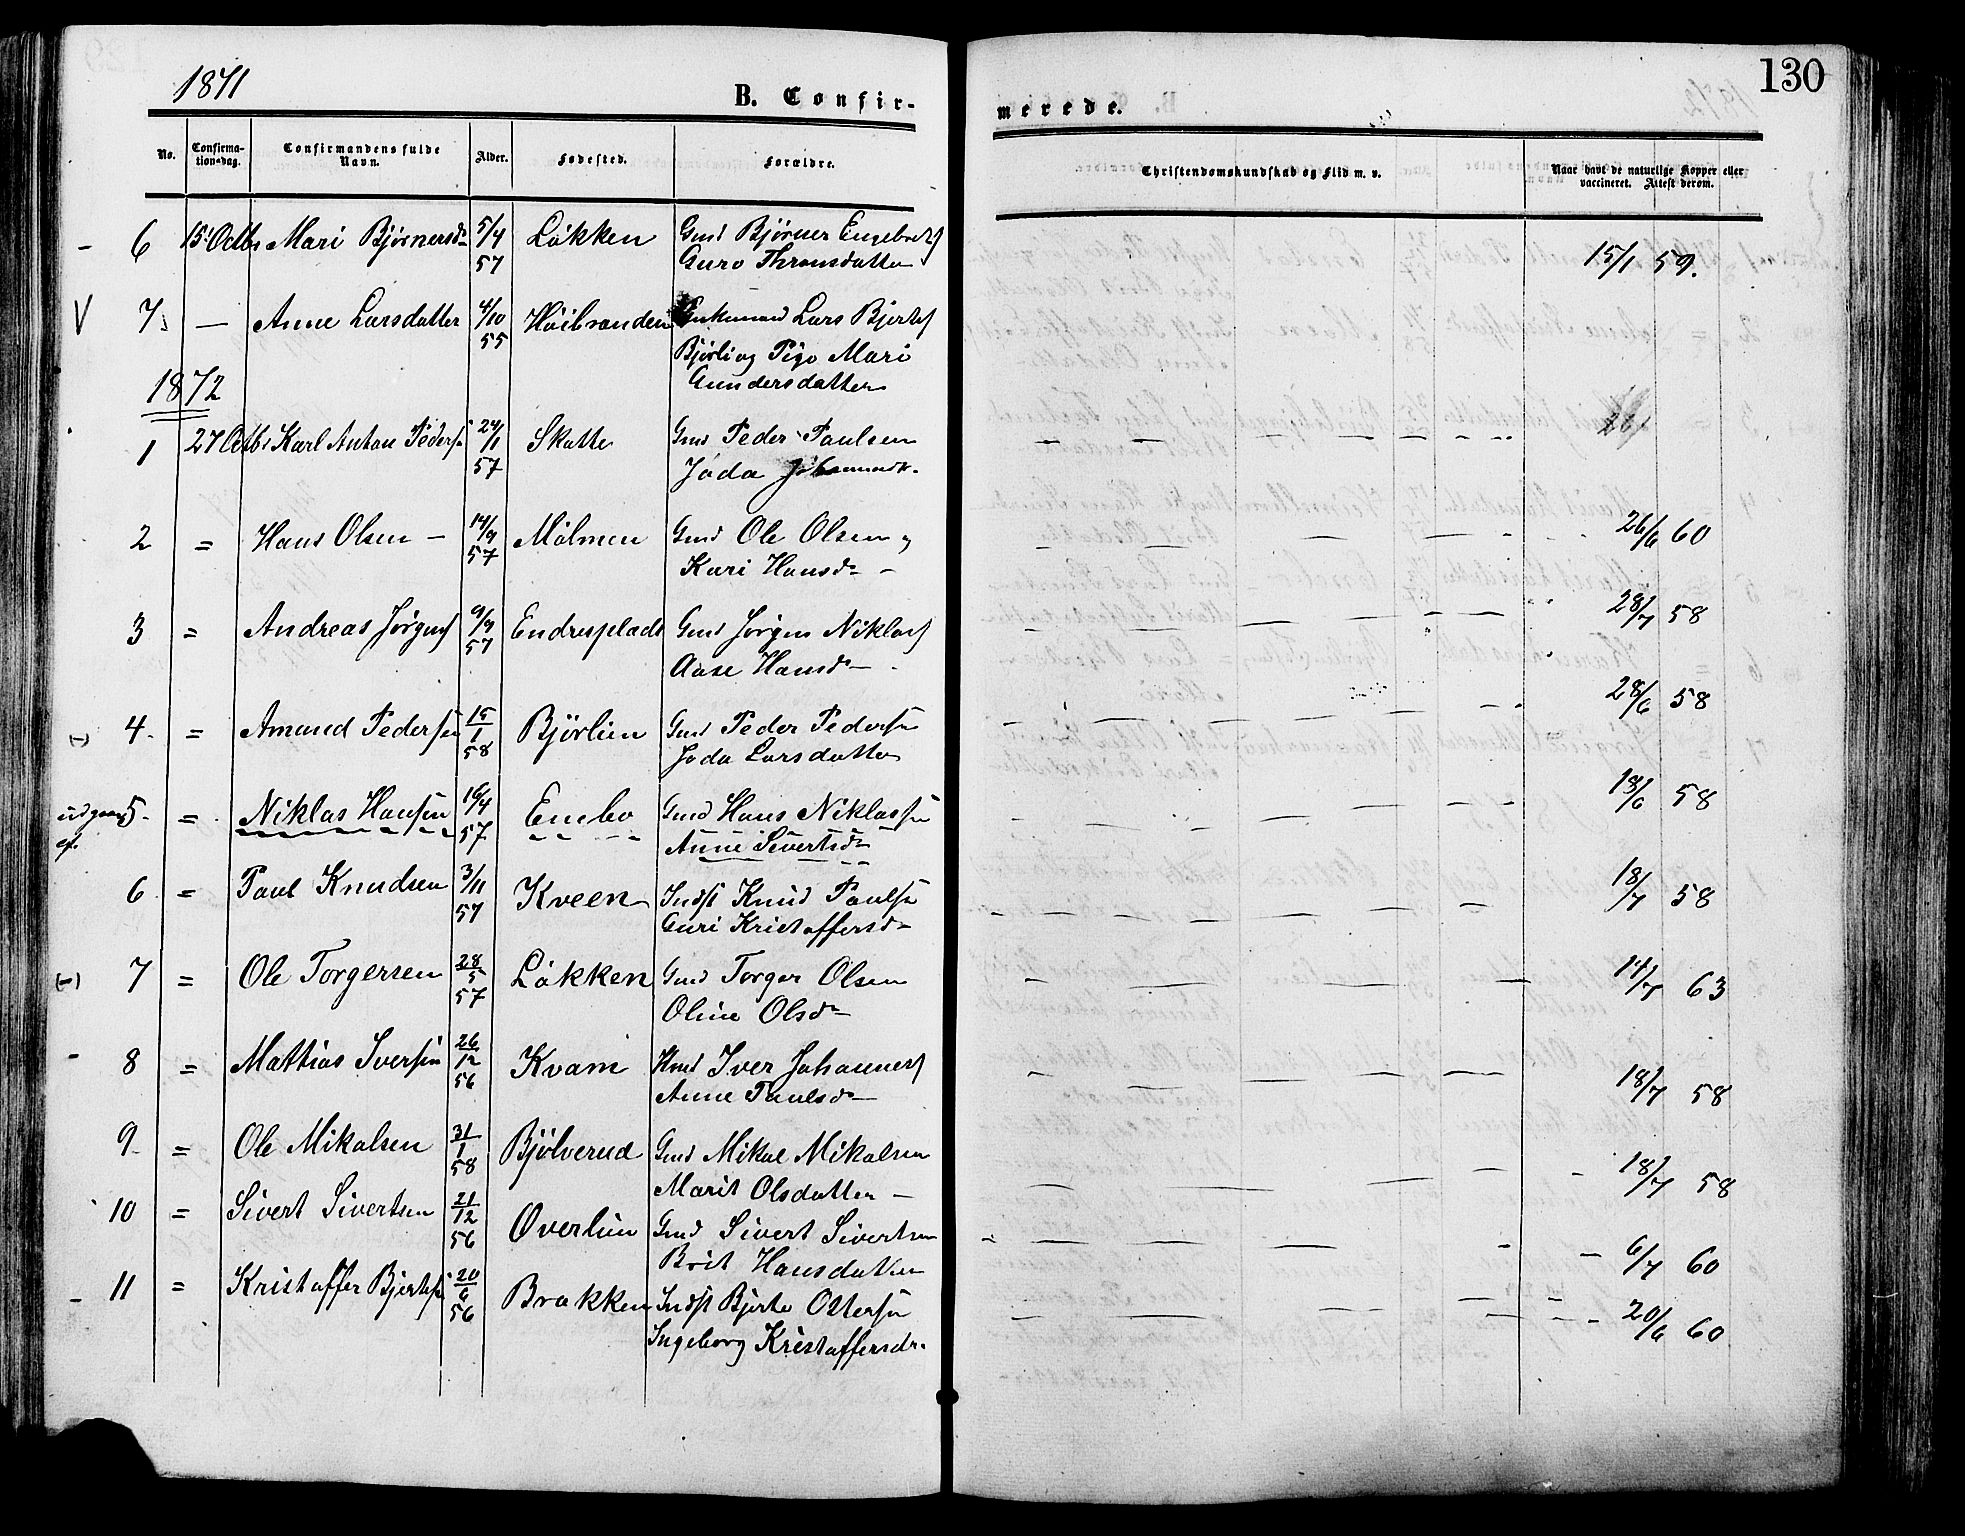 1871
130
B. Confir-
merede.
No.
Confirma-
tionsdag.
Confirmandens fulde
Navn.
Alder.
Fødested.
Forældre.
Christendomskundskab og Flid m. v.
Naar havt de naturlige Kopper eller
vaccineret. Attest derom.
- 6 15 Octbr Mari Bjørnersdr 5/4 57 Løkken Gmd Bjørner Engebrets
Guro Thronsdatter 15/1 59.
V 7. — Anne Larsdatter 4/10 55 Høibranden Enkemand Lars Bjerts
Bjørli og Pige Mari
Gundersdatter
1872
1 27 Octbr Karl Anton Peders 24/1 57 Skotte Gmd Peder Paulsen
Joda 26/
2 = Hans Olsen - 14/9 57 Mølmen Gmd Ole Olsen og
Kari Hansdr - 26/6 60
3 = Andreas Jørgens 9/9 57 Endresplads Gmd Jørgen Niklas
Aase Hansdr - 28/7 58
4. = Amund Pedersen 15/1 58 Bjørlien Gmd Peder Pedersen
Joda Larsdatter 28/6 58
5. = Niklas Hansen 16/4 57 Enebo Gmd Hans Niklassen
Anne Sivertsdr 18/6 58
6 = Paul Knudsen 3/11 57 Kveen Indst Knud Paulsen
Guri Kristoffersdr 18/7 58
7 = Ole Torgersen 28/5 57 Løkken Gmd Torger Olsen
Oline Olsdr 14/7 63
- 8 = Mathias Iversen 26/12 56 Kvam Hmd Iver Johannes
Anne Paulsdr 18/7 58
9 = Ole Mikalsen 31/1 58 Bjølverud Gmd Mikal Mikalsen
Marit Olsdatter - 18/7 58
10 = Sivert Sivertsen 21/12 56 Øverlien Gmd Sivert Sivertsen
Brit Hansdatter 6/7 60
- 11 = Kristoffer Bjertsen 20/6 56 Brakken Indst Bjerte Ottersen
Ingeborg Kristoffersdr. 20/6 60